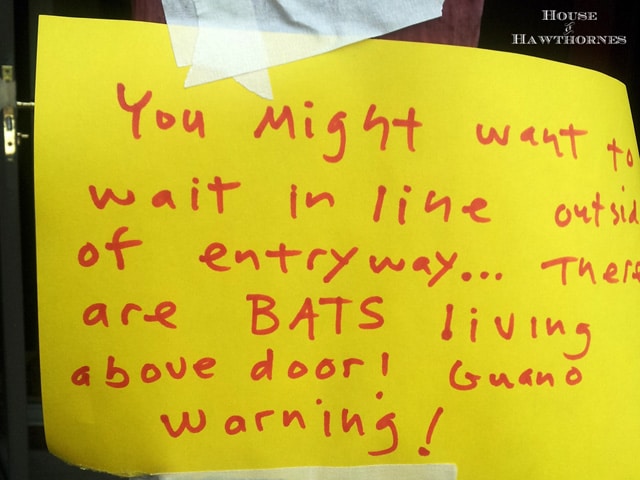 House
of
Hawthornes
You Might want to
wait in line outsid
of entryway... There
are BATS living
above door! Guano
warning!